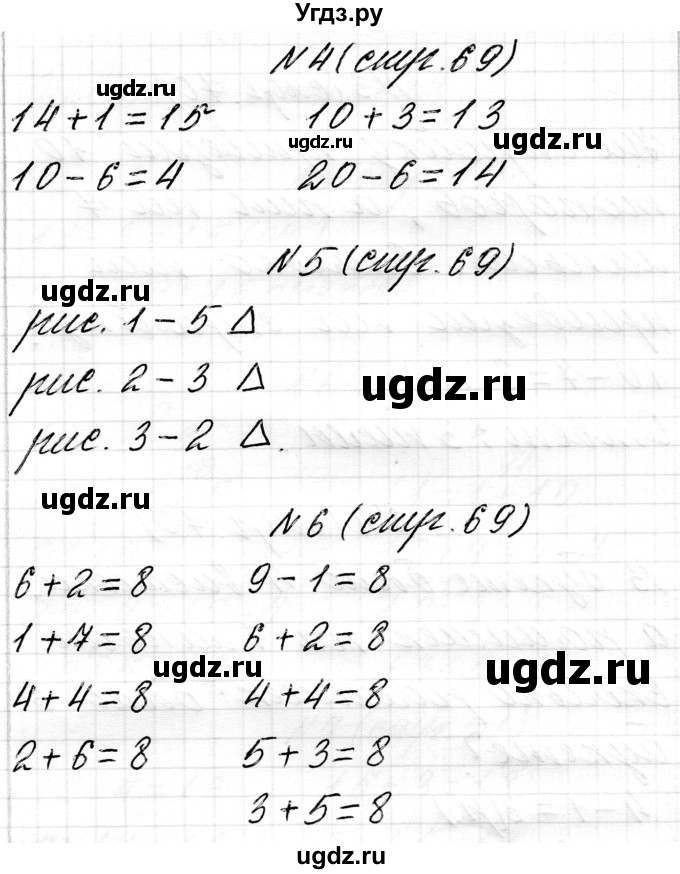 Угдз.ру
№4 (стр. 69)
ugdz.ru
14+1=15 10+3=13
ugdz.ru ugdz.ru
10-6=4 20-6=14
№5 (стр. 69)
ugdz.ru
рис. 1 - 5 △
рис. 2 - 3 △
ugdz.ru
рис. 3 - 2 △.
ugdz.ru
№6 (стр. 69)
6+2=8 9-1=8
1+7=8 6+2=8
ugdz.ru ugdz.ru
4+4=8 4+4=8
2+6=8 5+3=8
3+5=8
ugdz.ru